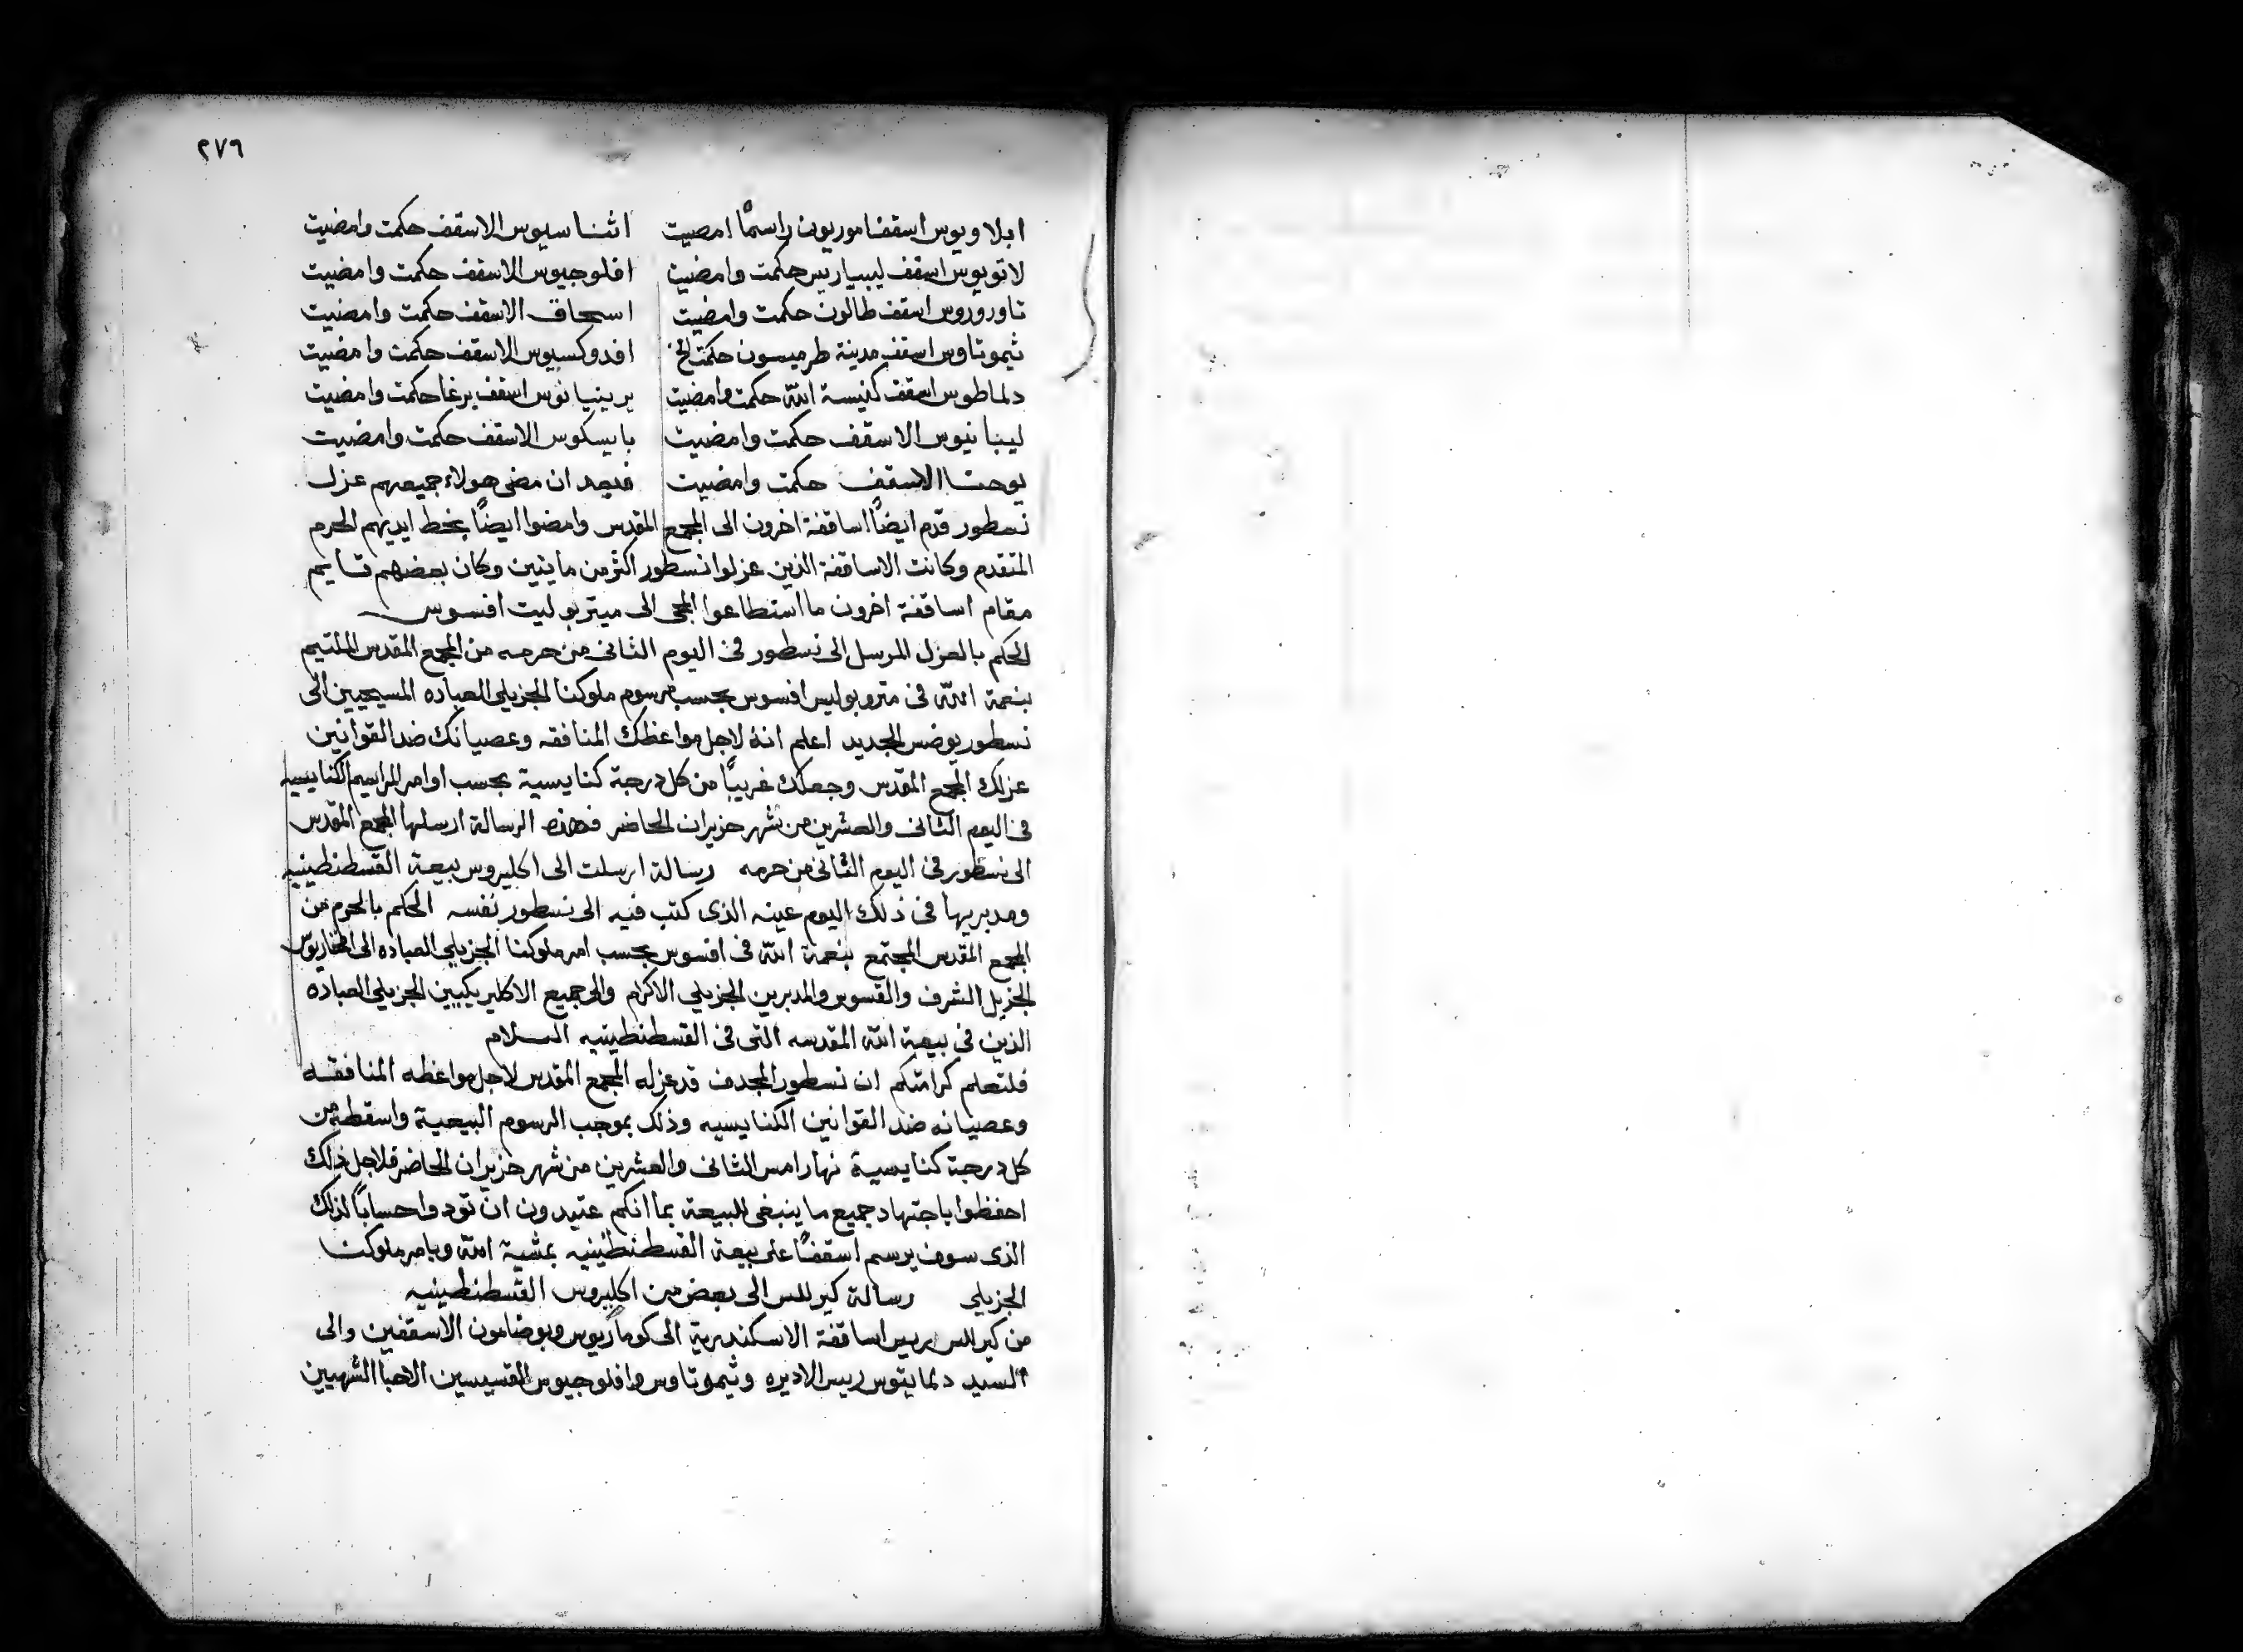 ٢٧٦
ابلاويوس اسقف اموريون راسمًا امضيت اثناسيوس الاسقف حكمت وامضيت
لاتويوس اسقف ليبياريس حكمت وامضيت افلوجيوس الاسقف حكمت وامضيت
تاوروروس اسقف طالون حكمت وامضيت اسحاق الاسقف حكمت وامضيت
ثيموتاوس اسقف مدينة طرميسون حكمت الخ افدوكسيوس الاسقف حكمت وامضيت
دلماطوس اسقف كنيسة الله حكمت وامضيت يرينيانوس اسقف برغا حكمت وامضيت
ليبانيوس الاسقف حكمت وامضيت بايسكوس الاسقف حكمت وامضيت
يوحنا الاسقف حكمت وامضيت فبعد ان مضى هولاء جميعهم عزل
نسطور قدم ايضًا اساقفة اخرون الى المجمع المقدس وامضوا ايضًا بخط ايديهم الحرم
المتقدم وكانت الاساقفة الذين عزلوا نسطور اكثر من مايتين وكان بعضهم قايم
مقام اساقفة اخرون ما استطاعوا المجى الى ميتربوليت افسوس
الحكم بالعزل المرسل الى نسطور فى اليوم الثانى من حرمه من المجمع المقدس الملتيم
بنعمة الله فى متروبوليس افسوس بحسب مرسوم ملوكنا الجزيلي العباده المسيحيين الى
نسطور يوضس الجديد اعلم انه لاجل مواعظك المنافقه وعصيانك ضد القوانين
عزلك المجمع المقدس وجعلك غريبًا من كل درجة كنايسية بحسب اوامر المراسيم الكنايسيه
فى اليوم الثانى والعشرين من شهر حزيران الحاضر فهذه الرسالة ارسلها المجمع المقدس
الى نسطور فى اليوم الثانى من حرمه رسالة ارسلت الى اكليروس بيعة القسطنطينيه
ومدبريها فى ذلك اليوم عينه الذى كتب فيه الى نسطور نفسه الحكم بالحرم من
المجمع المقدس المجتمع بنعمة الله فى افسوس بحسب امر ملوكنا الجزيلي العباده الى افخاريوس
الجزيل الشرف والقسوس والمدبرين الجزيلي الاكرام والى جميع الاكليريكيين الجزيلي العباده
الذين فى بيعة الله المقدسه التى فى القسطنطينيه السلام
فلتعلم كرامتكم ان نسطور المجدف قد عزله المجمع المقدس لاجل مواعظه المنافقه
وعصيانه ضد القوانين الكنايسيه وذلك بموجب الرسوم البيعية واسقطه من
كل درجة كنايسية نهار امس الثانى والعشرين من شهر حزيران الحاضر فلاجل ذلك
احفظوا باجتهاد جميع ما ينبغى للبيعة بما انكم عتيدون ان تودوا حسابًا لذلك
الذى سوف يرسم اسقفًا على بيعة القسطنطينيه بمشية الله وبامر ملوكنا
الجزيلي رسالة كيرللس الى بعض من اكليروس القسطنطينيه
من كيرللس رييس اساقفة الاسكندرية الى كوماريوس وبوضامون الاسقفين والى
السيد دلمايتوس رييس الاديره وثيموتاوس وافلوجيوس القسيسين الاحبا الشهيين